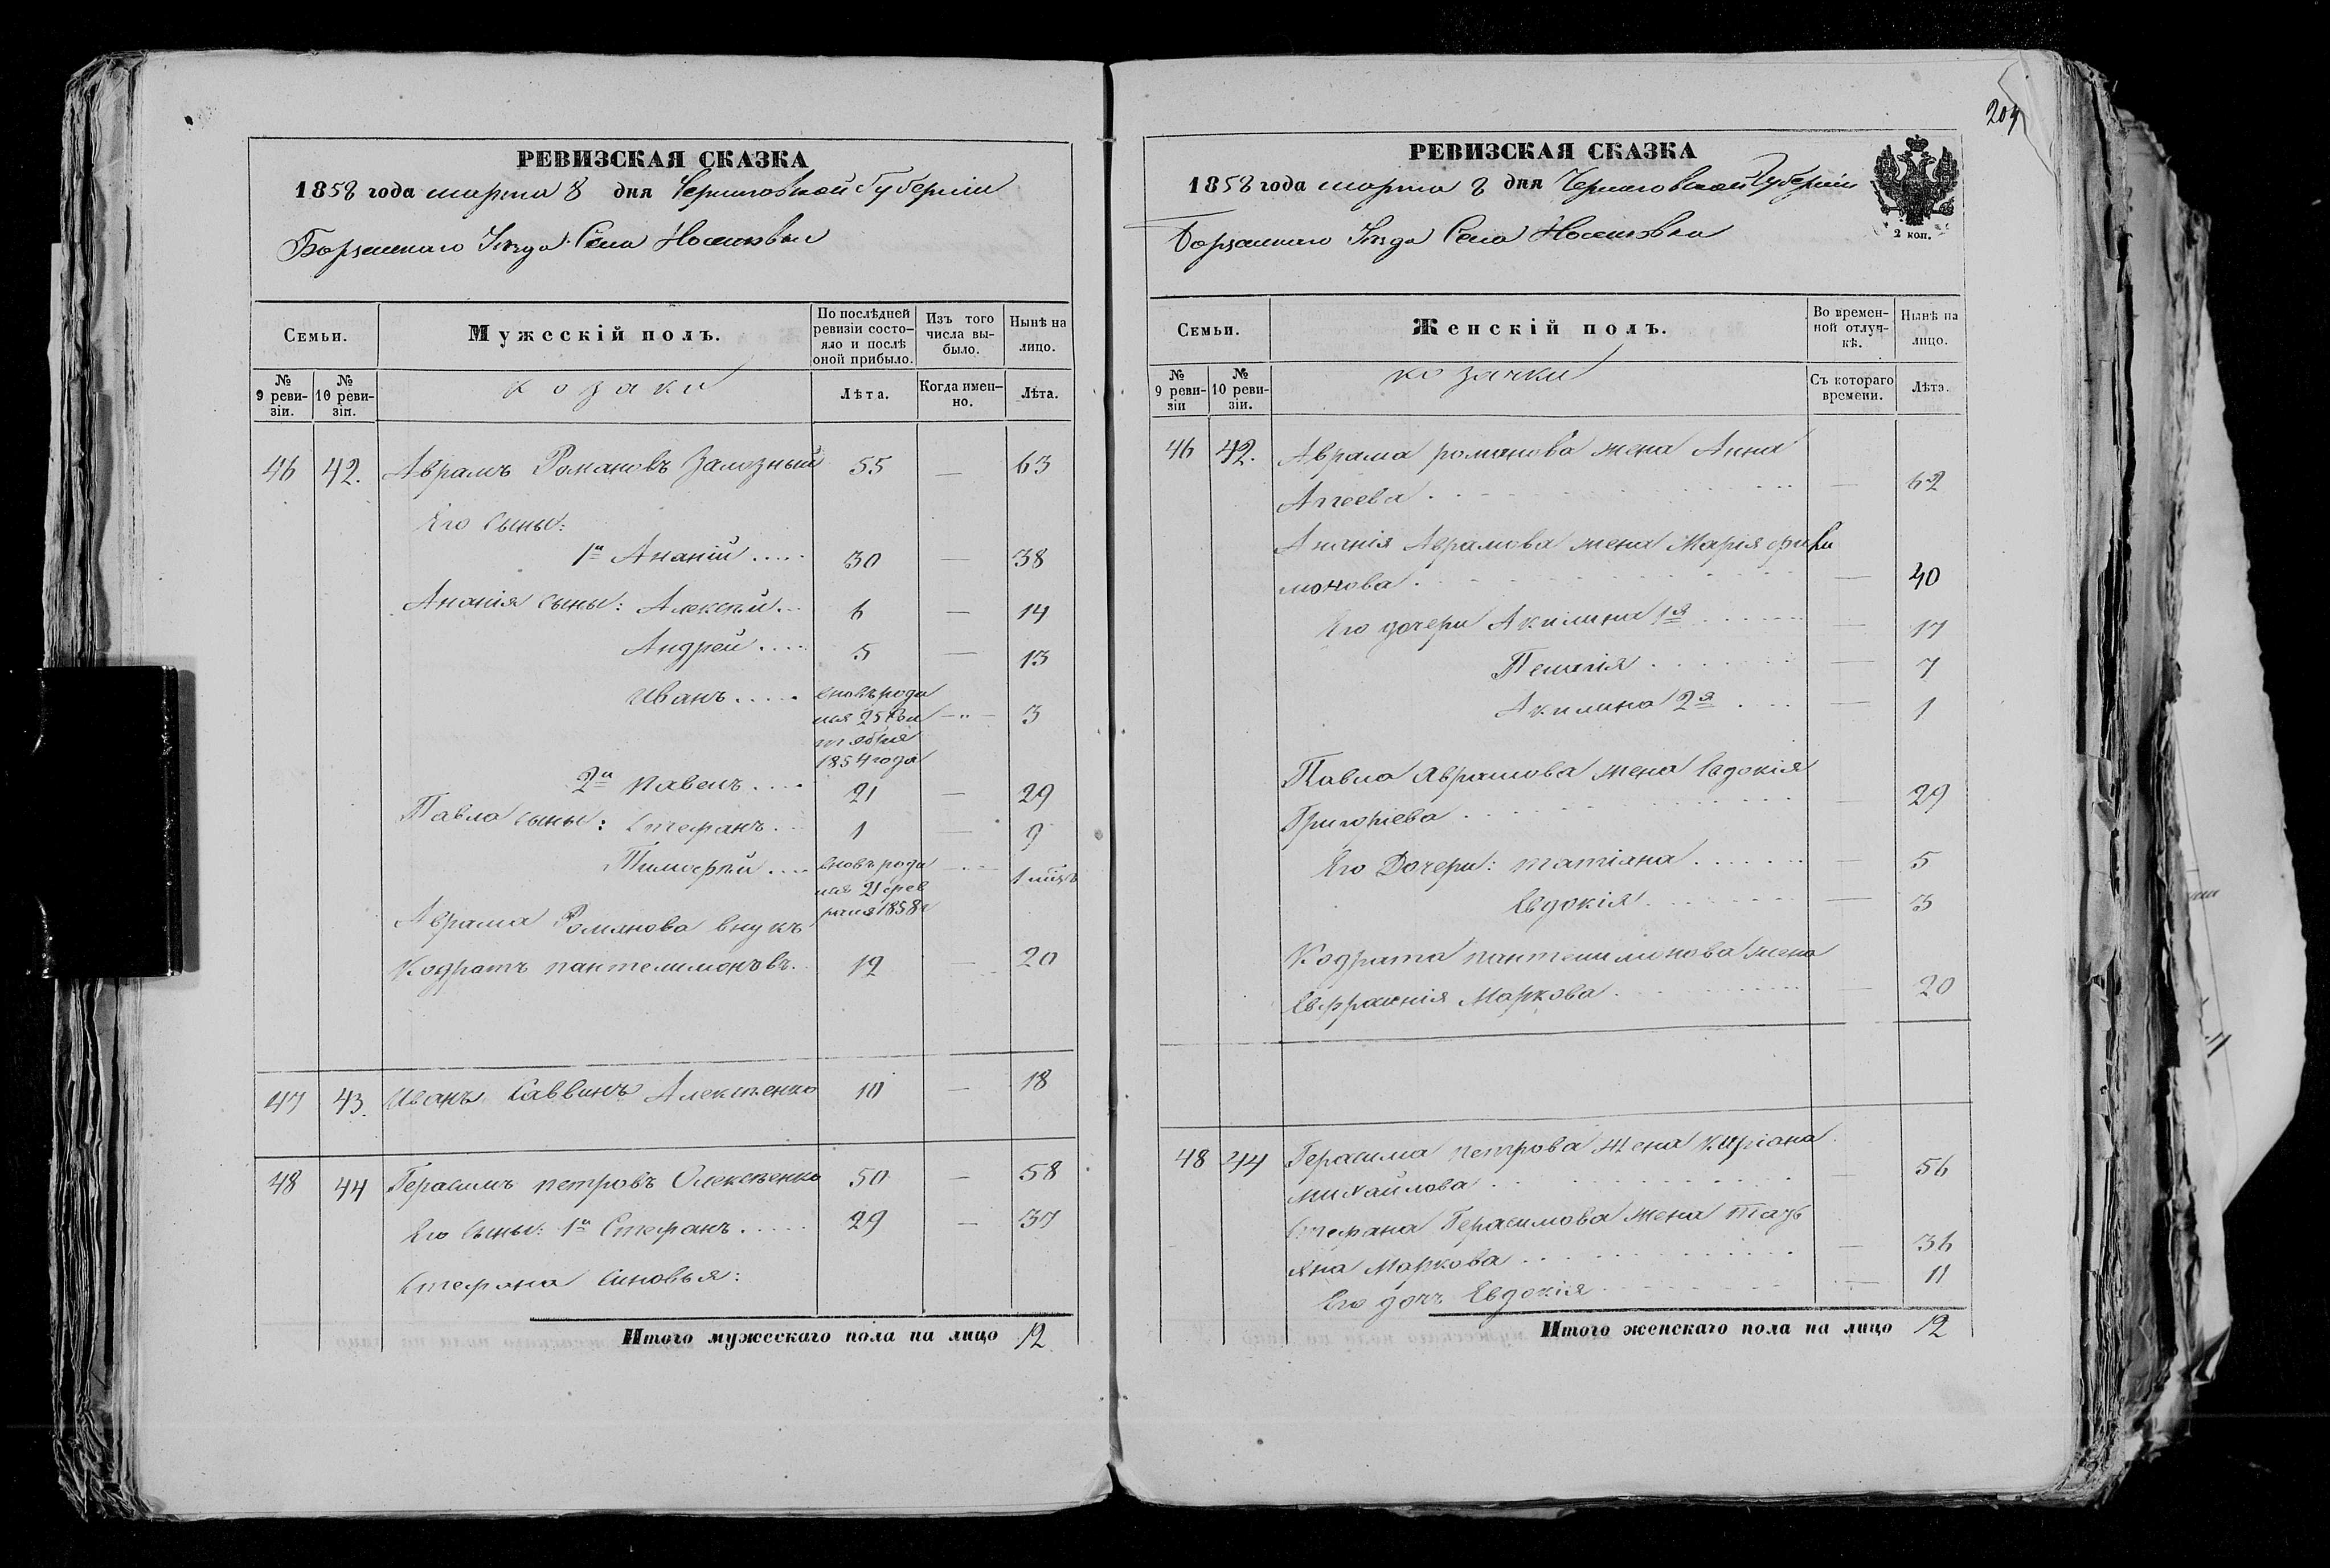 РЕВИЗСКАЯ СКАЗКА
1858 года марта 8 дня Черниговской Губернии
Борзенскаго Уезда Села Носелевки
Семьи.
Мужескій полъ.
По послѣдней ревизіи состояло и послѣ оной прибыло.
Изъ того числа выбыло.
Нынѣ на лицо.
№ 9 ревизіи.
№ 10 ревизіи.
козаки
Лѣта.
Когда именно.
Лѣта.
46 42. Аврамъ Романовъ Залозный 55 — 63
Его сыны:
1й Ананій ..... 30 — 38
Ананія сыны: Алексѣй... 6 — 14
Андрей .... 5 — 13
Иванъ ..... вновь роди
лся 25 Сен — 3
тября
1854 года
2й Павелъ .... 21 — 29
Павла сыны: Стефанъ... 1 — 9
Тимофѣй .... вновь роди — 1 мѣць
лся 21 фев
раля 1858 г
Аврама Романова внукъ
Кодратъ пантелимоновъ.. 12 — 20
47 43. Иванъ Саввинъ Алексѣенко 10 — 18
48 44 Герасимъ петровъ Олексѣенко 50 — 58
Его Сыны: 1й Стефанъ ..... 29 — 37
Стефана Синовья:
Итого мужескаго пола на лицо 12
204
РЕВИЗСКАЯ СКАЗКА
1858 года марта 8 дня Черниговской Губернии
Борзенскаго Уезда Села Носелевки
2 коп.
Семьи.
Женскій полъ.
Во временной отлучкѣ.
Нынѣ на лицо.
№ 9 ревизіи
№ 10 ревизіи.
козачки
Съ котораго времени.
Лѣта.
46 42. Аврама романова жена Анна
Агеева . — 62
Ананія Аврамова жена Марія фили
монова . — 40
Его дочери Акилина 1я — 17
Пелагія — 7
Акилина 2я — 1
Павла Аврамова жена Евдокія
Григоріева — 29
Его Дочери: татіана 5
Евдокія — 3
Кодрата пантелимонова жена
Евфросинія Маркова — 20
48 44 Герасима петрова жена Киріана
михайлова — 56
Стефана Герасимова жена тать
яна Маркова — 36
Его дочь Евдокія — 11
Итого женскаго пола на лицо 12